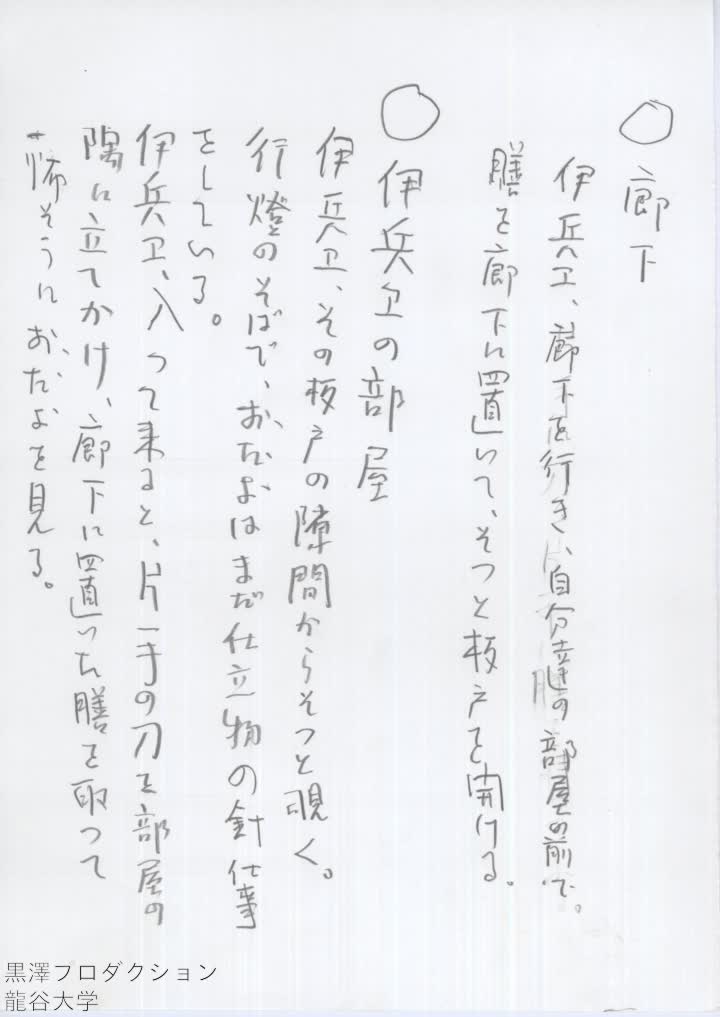 ○廊下
伊兵卫、廊下を行き、自分達の部屋の前で。
膳を廊下に置いて、そっと板戸を開ける。
○伊兵卫の部屋
伊兵卫、その板戸の隙間からそっと覗く。
行燈のそばで、おたよはまだ仕立物の針仕事
をしている。
伊兵卫、入って来ると、片手の刀を部屋の
隅に立てかけ、廊下に置いた膳を取って
怖そうにおたよを見る。
黒澤プロダクション
龍谷大学